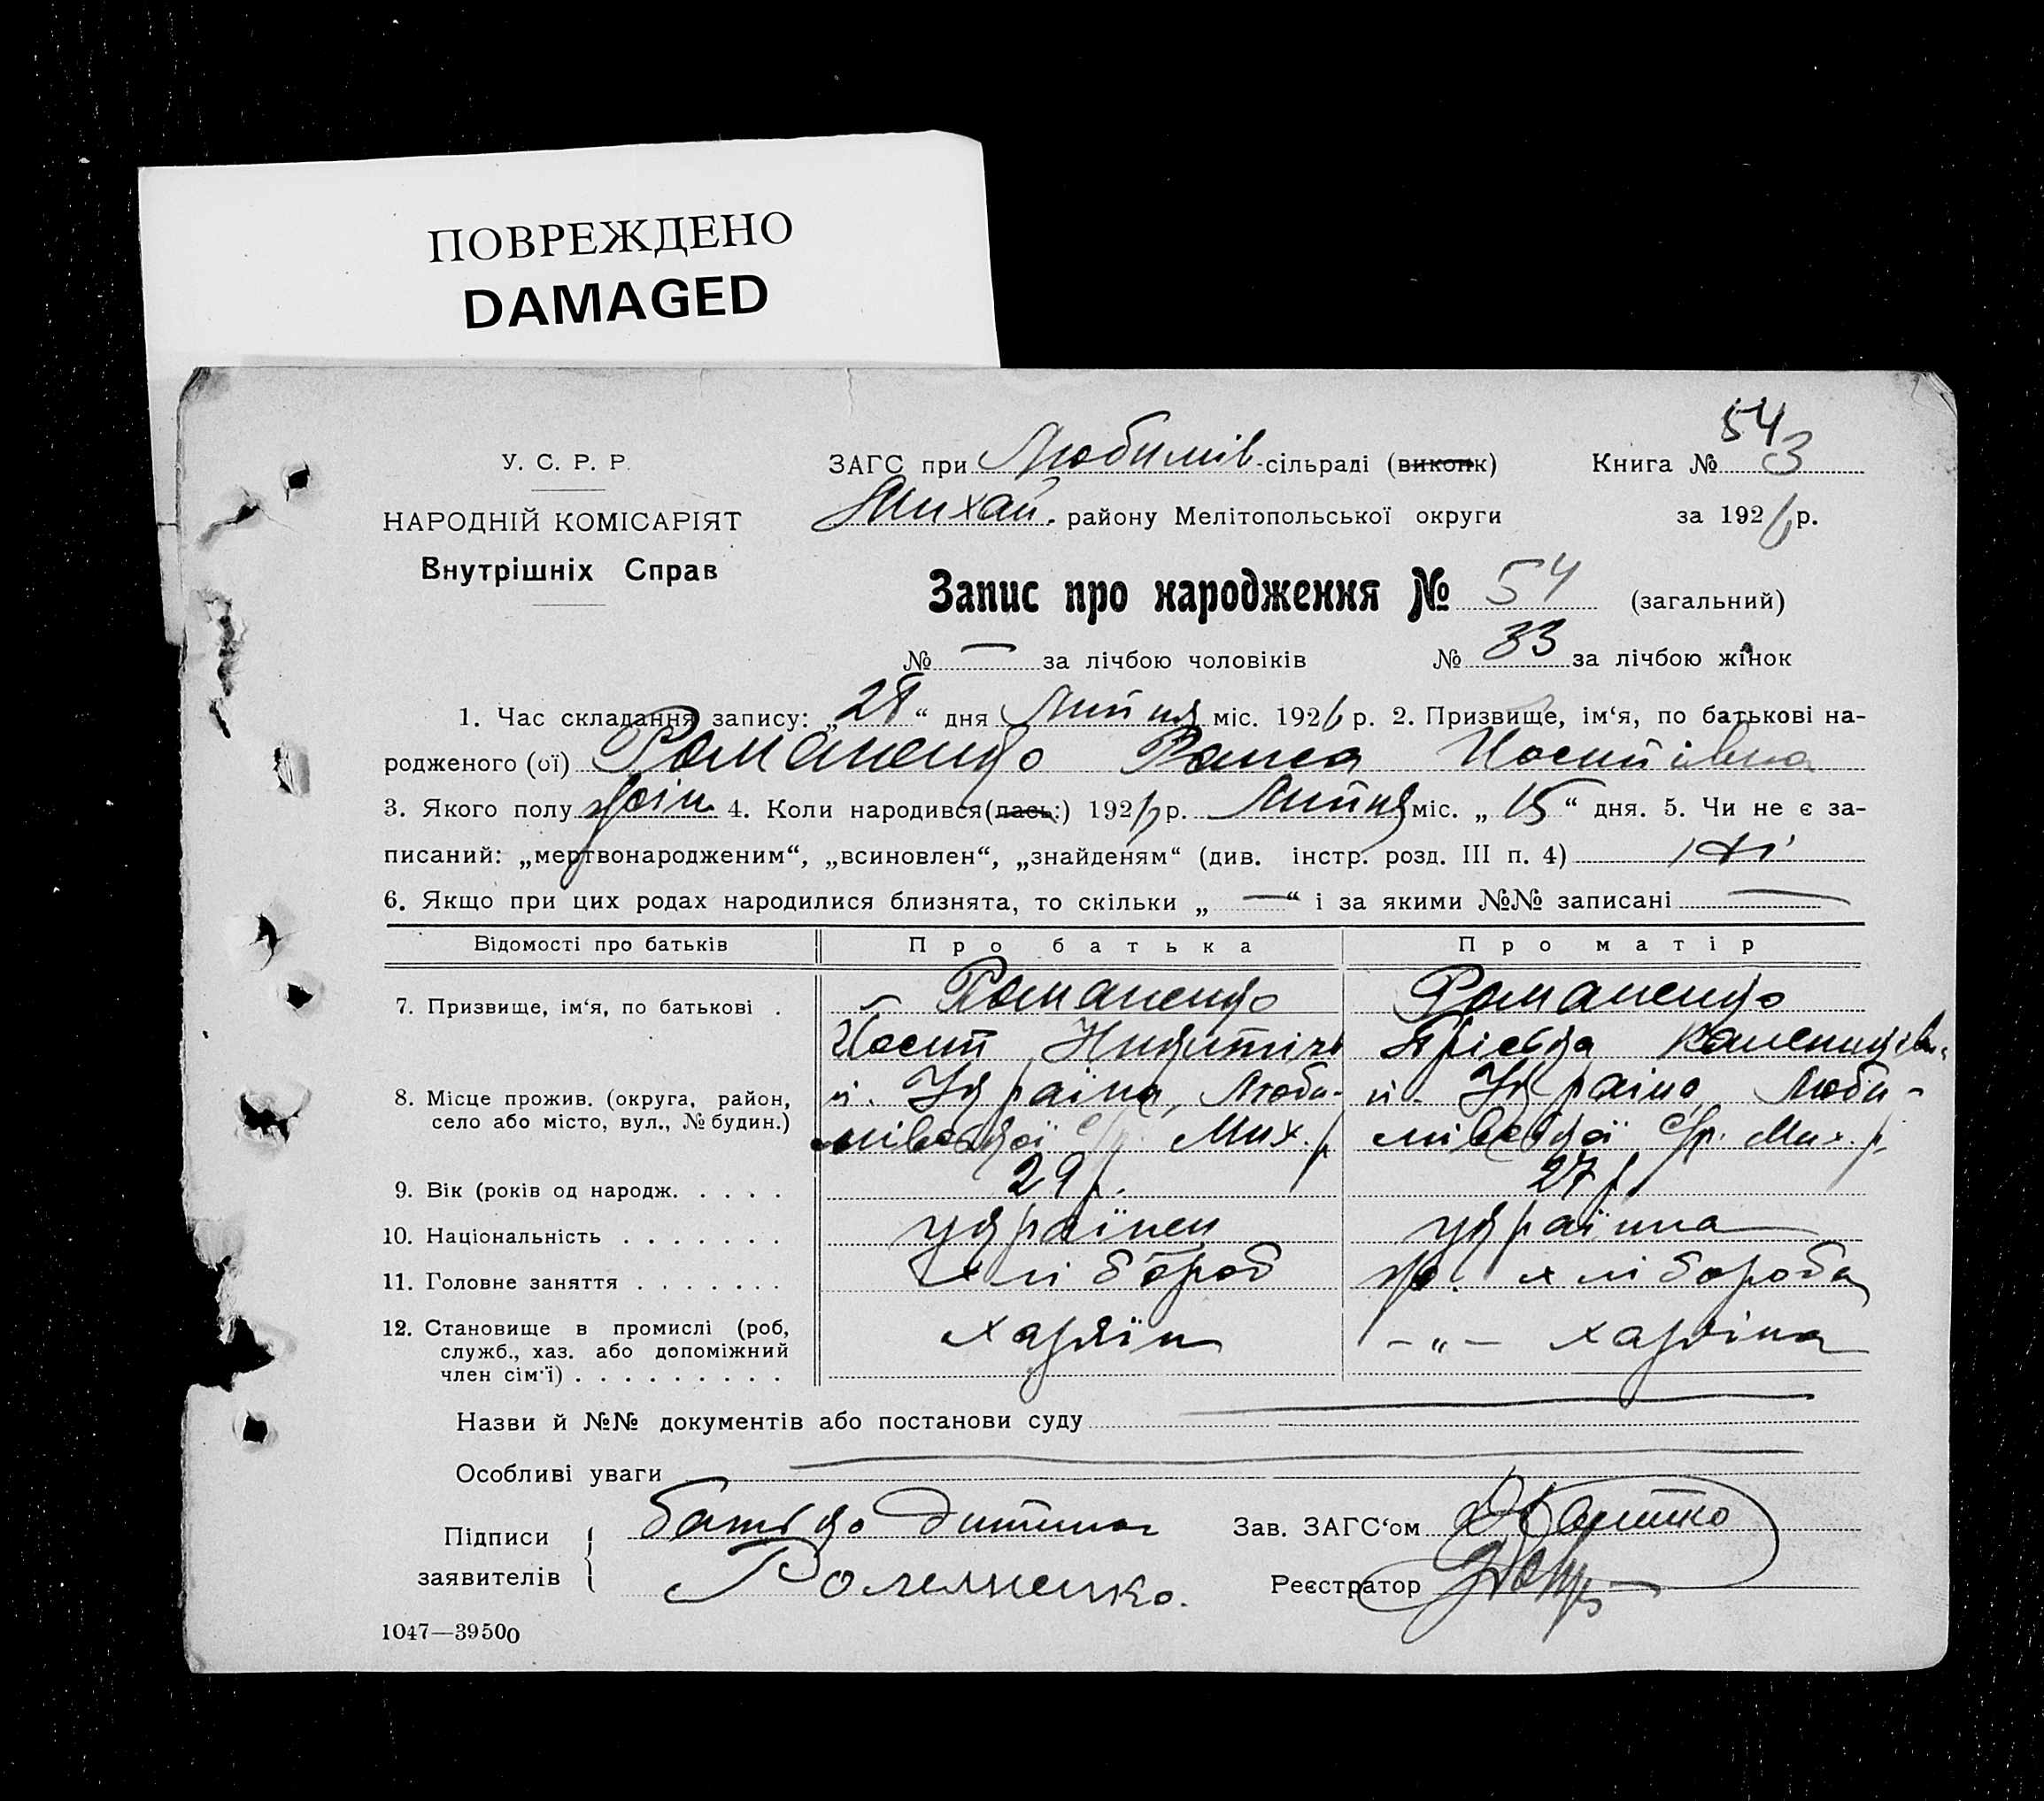 ПОВРЕЖДЕНО
DAMAGED
54
У. С. Р. Р.
НАРОДНІЙ КОМІСАРІЯТ
Внутрішніх Справ
ЗАГС при Любимів-сільраді (викопк)
Книга № 3
Михай. району Мелітопольської округи
за 1926 р.
Запис про народження № 54 (загальний)
№ — за лічбою чоловіків № 33 за лічбою жінок
1. Час складання запису: „28“ дня Липня міс. 1926 р. 2. Призвище, ім‘я, по батькові на-
родженого (ої) Романенко Раиса Йосипівна
3. Якого полу жін. 4. Коли народився(лась:) 1926 р. Липня міс. „15“ дня. 5. Чи не є за-
писаний: „мертвонародженим“, „всиновлен“, „знайденям“ (див. інстр. розд. III п. 4) ні
6. Якщо при цих родах народилися близнята, то скільки „—“ і за якими №№ записані —
Відомості про батьків Про батька Про матір
7. Призвище, ім‘я, по батькові . Романенко Романенко
Йосип
8. Місце прожив. (округа, район, село або місто, вул., № будин.)
Україна, Люби- Україна, Люби-
мівської с/р. Мих. р. мівської с/р. Мих. р.
9. Вік (років од народж. . . . . 29 р. 27 р.
10. Національність . . . . . . . українец українка
11. Головне заняття . . . . . . . хлібороб хлібороба
12. Становище в промислі (роб, служб., хаз. або допоміжний член сім‘ї) . . . . . . . . .
хазяїн -„- хазяіна
Назви й №№ документів або постанови суду
Особливі уваги
Підписи заявителів
батько дитини
Романенко.
Зав. ЗАГС‘ом
Реєстратор
1047—39500